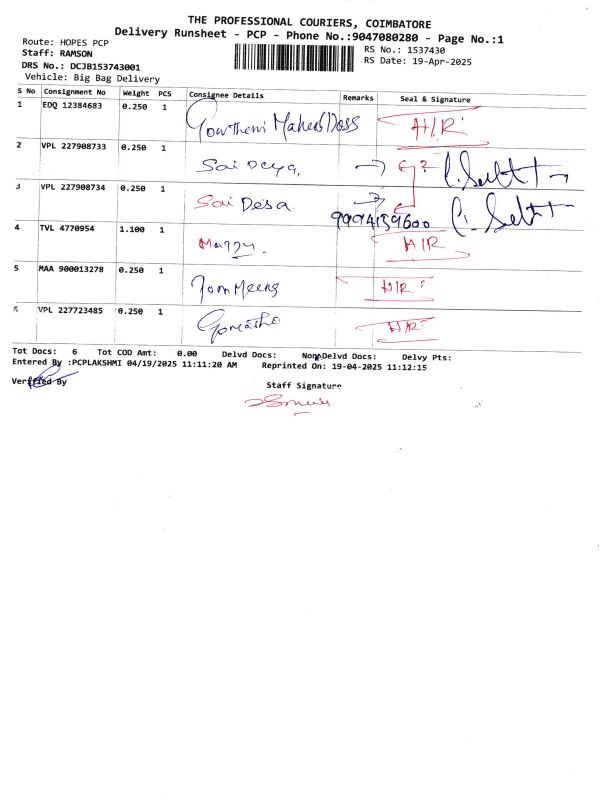 THE PROFESSIONAL COURIERS, COIMBATORE
Delivery Runsheet - PCP - Phone No.:9047080280 - Page No.:1
Route: HOPES PCP
RS No.: 1537430
Staff: RAMSON
RS Date: 19-Apr-2025
DRS No.: DCJB153743001
Vehicle: Big Bag Delivery
S No Consignment No Weight PCS Consignee Details Remarks Seal & Signature
1 EDQ 12384683 0.250 1 H/R
2 VPL 227908733 0.250 1 Sai
3 VPL 227908734 0.250 1 Sai Desa
9994159600
4 TVL 4770954 1.100 1 H/R
5 MAA 900013278 0.250 1 H/R
VPL 227723485 0.250 1 H/R
Tot Docs: 6 Tot COD Amt: 0.00 Delvd Docs: Non Delvd Docs: Delvy Pts:
Entered By :PCPLAKSHMI 04/19/2025 11:11:20 AM Reprinted On: 19-04-2025 11:12:15
Verified By
Staff Signature